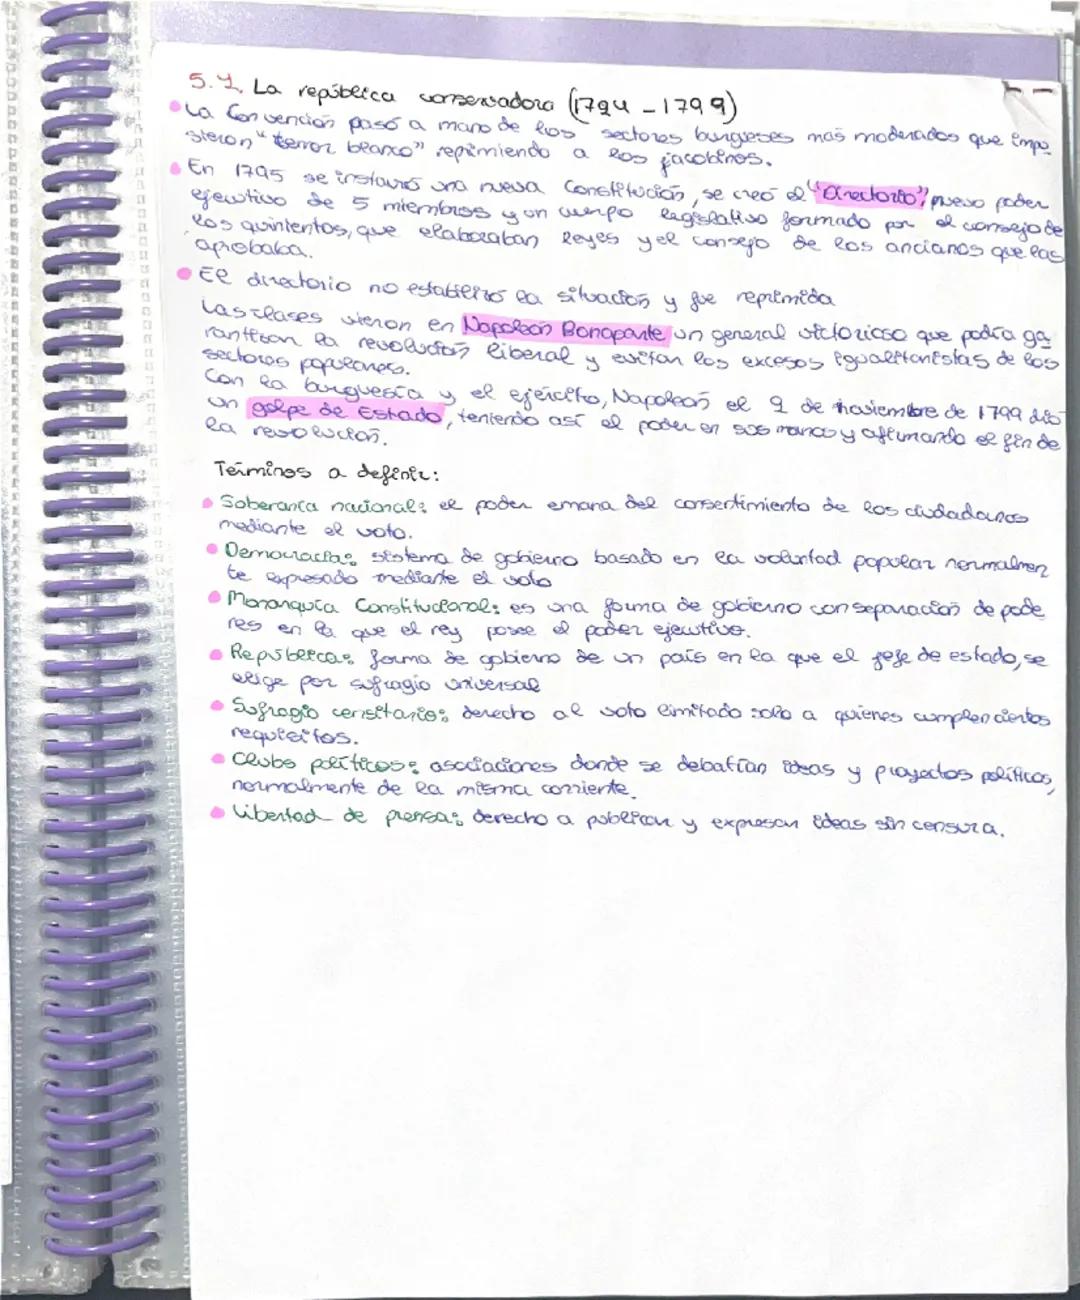 5.4. La república conservadora (1794-1799)
La Convención pasó a mano de los sectores burgueses más moderados que impu
sieron "terror blanco" reprimiendo a los jacobinos.
En 1795 se instauró una nueva Constitución, se creó el "Directorio", nuevo poder
ejecutivo de 5 miembros y un cuerpo legislativo formado por el consejo de
los quinientos, que elaboraban leyes y el consejo de los ancianos que las
aprobaba.
El directorio no estabilizó la situación y fue reprimida
Las clases vieron en Napoleón Bonaparte un general victorioso que podía ga
rantizar la revolución liberal y evitar los excesos igualitaristas de los
sectores populares.
Con la burguesía y el ejército, Napoleón el 9 de noviembre de 1799 dio
un golpe de Estado, teniendo así el poder en sus manos y afirmando el fin de
la revolución.
Términos a definir:
Soberanía nacional: el poder emana del consentimiento de los ciudadanos
mediante el voto.
Democracia: sistema de gobierno basado en la voluntad popular normalmen
te expresado mediante el voto
Monarquía Constitucional: es una forma de gobierno con separación de pode
res en la que el rey posee el poder ejecutivo.
República: forma de gobierno de un país en la que el jefe de estado, se
elige por sufragio universal
Sufragio censitario: derecho al voto limitado solo a quienes cumplen ciertos
requisitos.
Clubs políticos: asociaciones donde se debatían ideas y proyectos políticos,
normalmente de la misma corriente.
Libertad de prensa: derecho a publicar y expresar ideas sin censura.